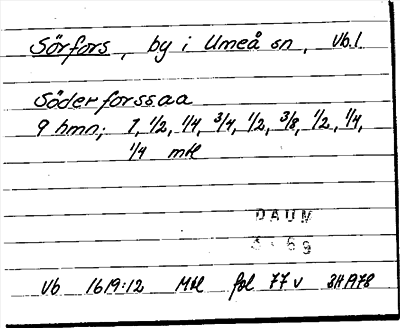 Sörfors, by i Umeå sn, Vb.l
Söderforssaa
9 hmn; 1, 1/2, 1/4, 3/4, 1/2, 3/8, 1/2, 1/4,
1/4 mtl
DAUM
Vb 1619:12 Mtl fol 77 v